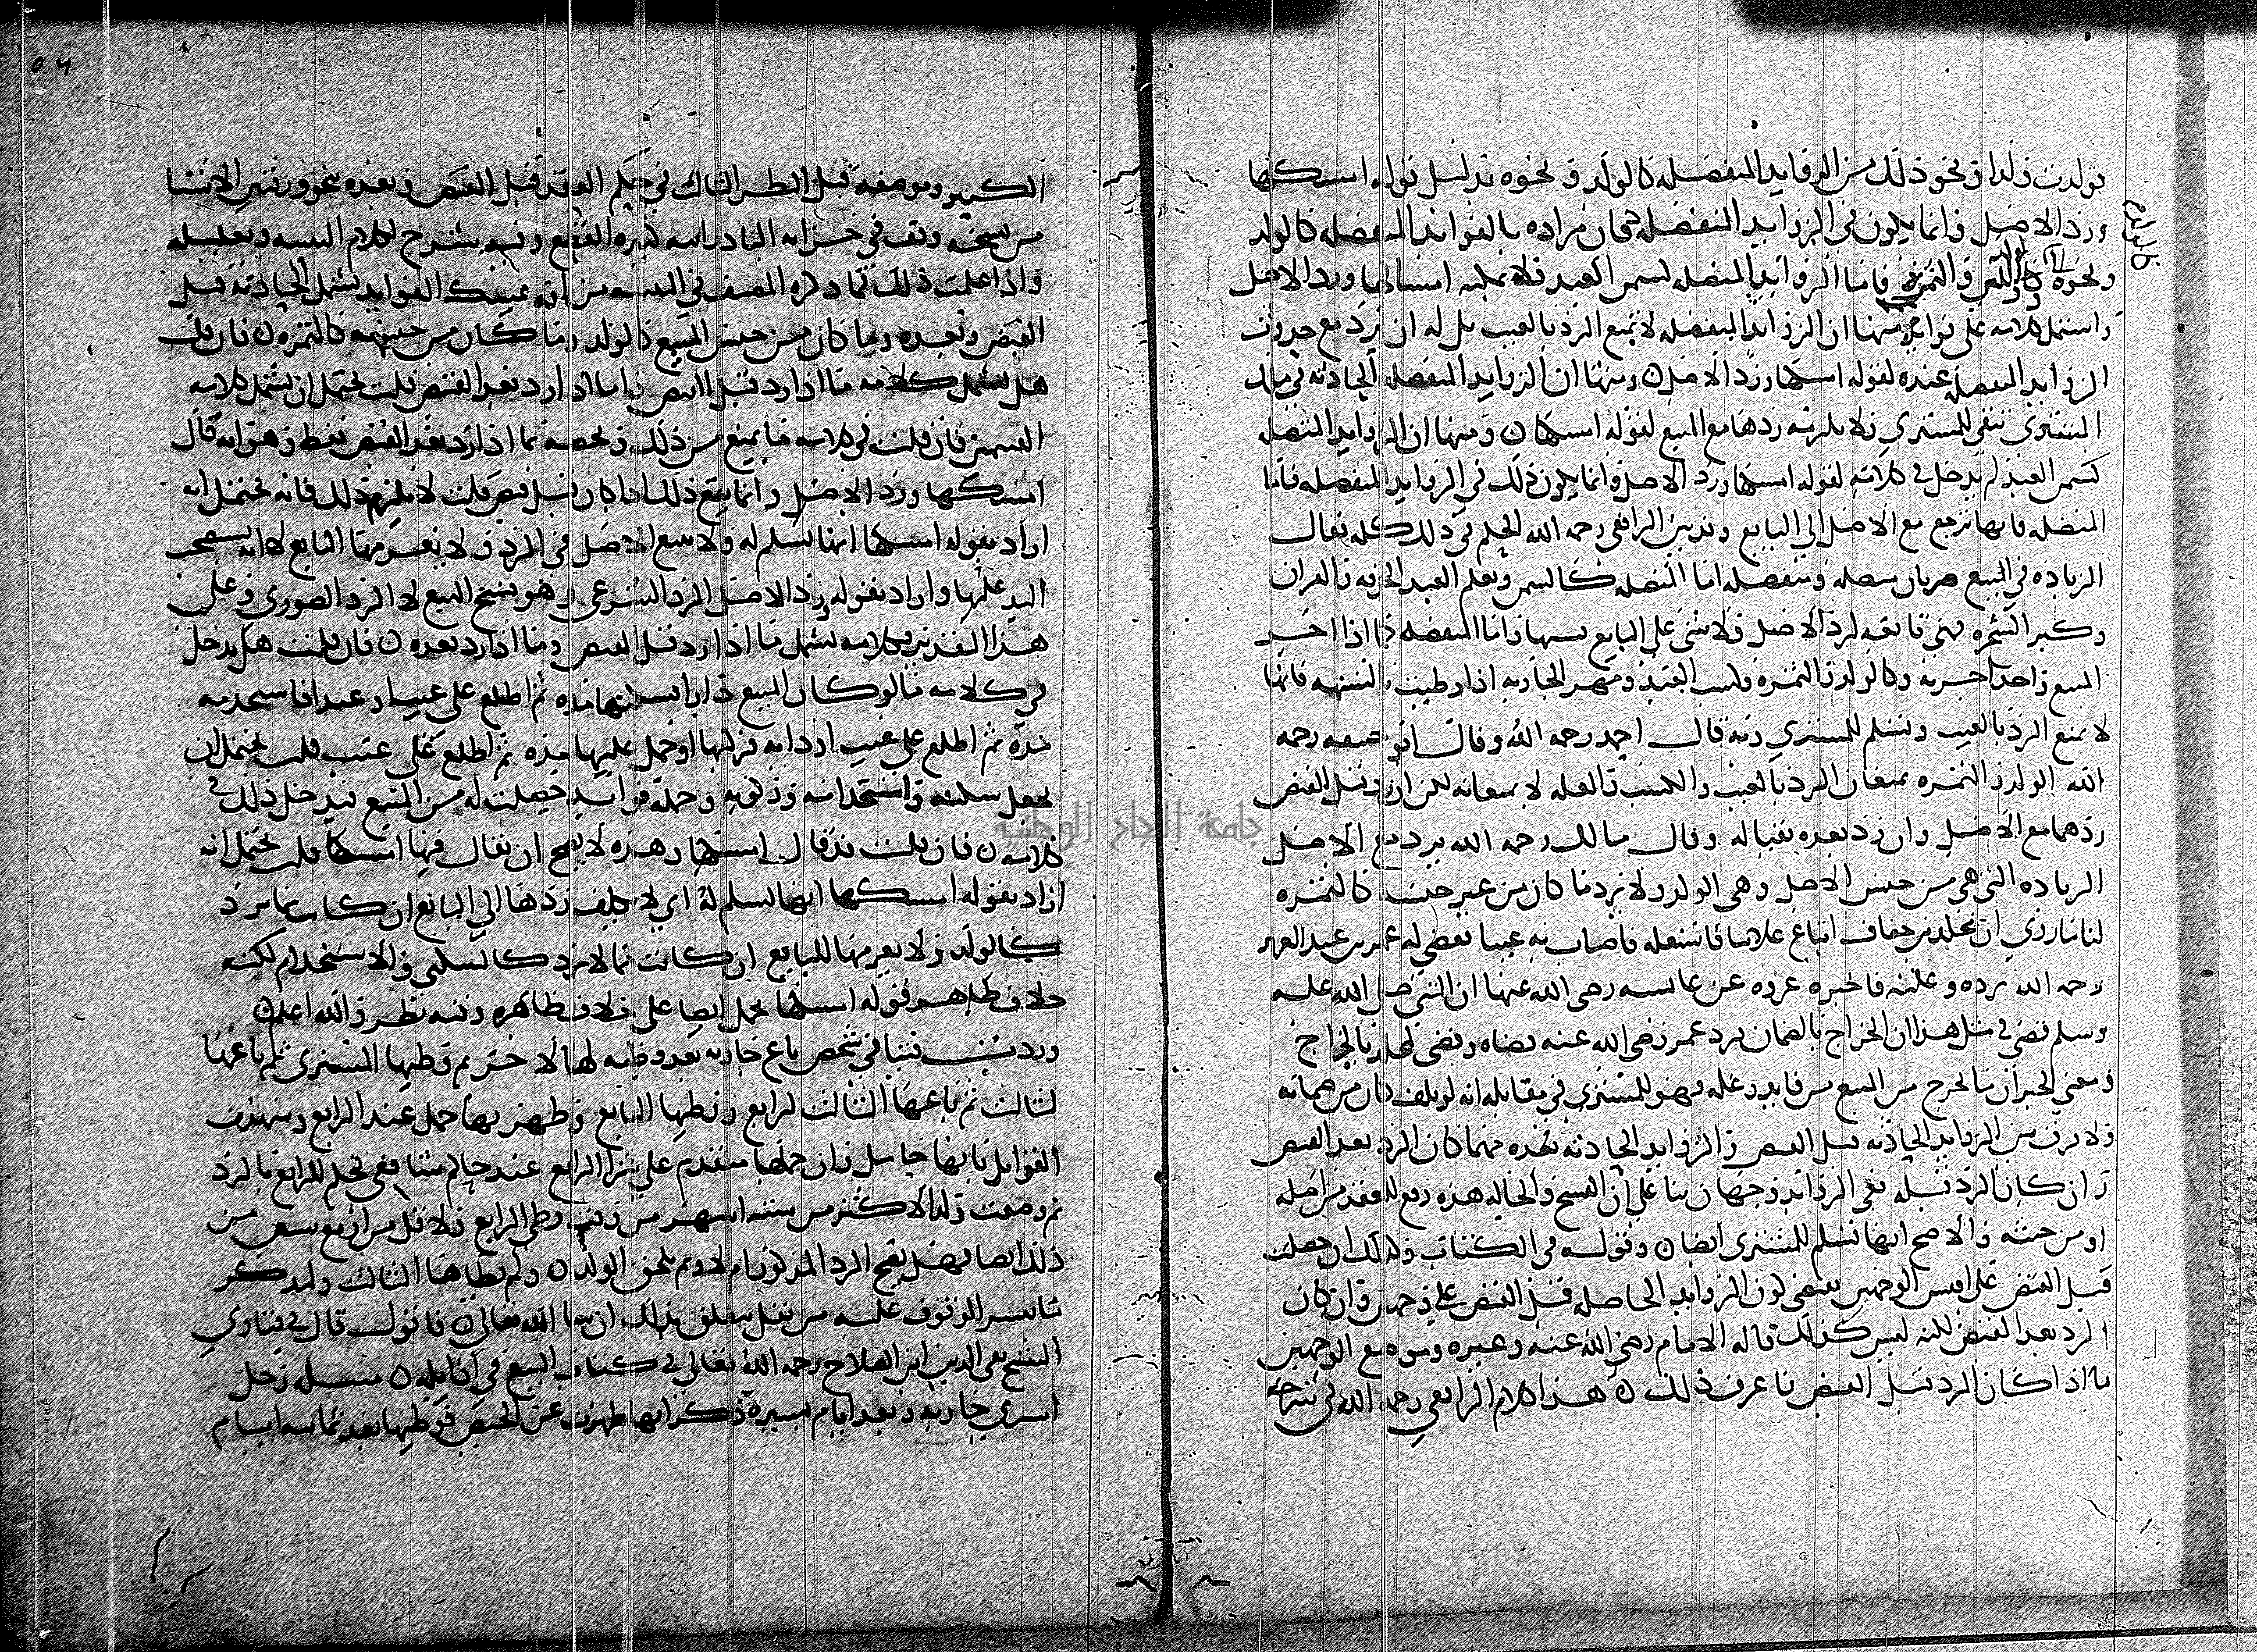 فولدت ولدا ونحو ذلك من الزوايد المنفصله كالولد ونحوه بدليل قوله امسكها
ورد الاصل وانما يكون في الزوايد المنفصله فكان مراده بالفوايد المنفصله كالولد
ونحوه كاللبن والثمرة فاما الزوايد المتصله كسمن العبد فلا يمكنه امساكها ورد الاصل
واشتمل كلامه على فوايد منها ان الزوايد المنفصله لا تمنع الرد بالعيب بل له ان يرد مع حدوث
الزوايد المنفصله عنده لقوله امسكها ورد الاصل ومنها ان الزوايد المنفصله الحادثه في ملك
المشتري تبقى للمشتري ولا يلزمه ردها مع المبيع لقوله امسكها ومنها ان الزوايد المتصله
كسمن العبد لم يدخل في كلامه لقوله امسكها ورد الاصل وانما يكون ذلك في الزوايد المنفصله فاما
المتصله فانها ترجع مع الاصل الى البايع وقد بين الرافعي رحمه الله الحكم في ذلك كله فقال
الزياده في المبيع ضربان متصله ومنفصله اما المتصله كالسمن وتعلم العبد الحرفه والقران
وكبر الشجره فهي تابعه لرد الاصل ولا شي على البايع بسببها واما المنفصله فاذا اجر
المبيع واخذ اجرته وكالولد والثمره وكسب العبد ومهر الجاريه اذا وطيت بالشبهه فانها
لا تمنع الرد بالعيب وتسلم للمشتري وبه قال احمد رحمه الله وقال ابو حنيفه رحمه
الله الولد والثمره يمنعان الرد بالعيب والكسب والغله لا يمنعانه لكن ان رد قبل القبض
ردهما مع الاصل وان رد بعده بقيا له وقال مالك رحمه الله يرد مع الاصل
الزياده التي هي من جنس الاصل وهي الولد ولا يرد ما كان من غير جنسه كالثمره
لنا ما روي ان مخلد بن خفاف ابتاع غلاما فاستغله فاصاب به عيبا فقضى له عمر بن عبد العزيز
رحمه الله برده وغلته فاخبره عروه عن عايشه رضي الله عنها ان النبي صلى الله عليه
وسلم قضى في مثل هذا ان الخراج بالضمان فرد عمر رضي الله عنه قضاه وقضى لمخلد بالخراج
ومعنى الخبر ان ما يخرج من المبيع من فايده وغله فهو للمشتري في مقابله انه لو تلف كان من ضمانه
ولا فرق بين الزوايد الحادثه قبل القبض والزوايد الحادثه بعده مهما كان الرد بعد القبض
وان كان الرد قبله ففي الزوايد وجهان بناء على ان الفسخ والحاله هذه رفع للعقد من اصله
او من حينه والاصح انها تسلم للمشتري ايضا وقوله في الكتاب وكذلك ان حصلت
قبل القبض على اقيس الوجهين يقتضي كون الزوايد الحاصله قبل القبض على وجهين وان كان
الرد بعد القبض لكنه ليس كذلك قاله الامام رضي الله عنه وغيره وموضع الوجهين
ما اذا كان الرد قبل القبض فاعرف ذلك هذا كلام الرافعي رحمه الله في شرحه
الكبير وموضعه قبل النظر الثالث في حكم العقد قبل القبض وبعده بنحو ورقتين
من نسخه وقف في خزانه
واذا علمت ذلك فما ذكره المصنف في التنبيه من انه يمسك الفوايد يشمل الحادثه قبل
القبض وبعده وما كان من جنس المبيع كالولد وما كان من غير جنسه كالثمره فان قلت
هل يشمل كلامه ما اذا رد قبل القبض واما اذا رد بعد القبض قلت يحتمل ان يشمل كلامه
القسمين فان قلت في كلامه ما يمنع من ذلك ويخصه بما اذا رد بعد القبض فقط وهو انه قال
امسكها ورد الاصل وانما يقع ذلك اذا كان قبل قبض قلت لا يلزم ذلك فانه يحتمل انه
اراد بقوله امسكها انها تسلم له ولا تتبع الاصل في الرد ولا يغرمها البايع لانه يستحق
اليد عليها واراد بقوله ورد الاصل الرد الشرعي وهو فسخ البيع لا الرد الصوري وعلى
هذا التقدير فكلامه يشمل ما اذا رد قبل القبض وما اذا رد بعده فان قلت هل يدخل
في كلامه ما لو كان المبيع دارا فسكنها مده ثم اطلع على عيب او عبدا فاستخدمه
مده ثم اطلع على عيب او دابه فركبها او حمل عليها مده ثم اطلع على عيب قلت يحتمل ان
يجعل سكنه واستخدامه وركوبه وحمله فوايد حصلت له من المبيع فيدخل ذلك في
كلامه فان قلت قد قال امسكها وهذه لا يصح ان يقال فيها امسكها قلت يحتمل انه
اراد بقوله امسكها انها تسلم له اي لا يكلف ردها الى البايع ان كانت مما يرد
كالولد ولا يغرمها للبايع ان كانت مما لا يرد كالسكنى والاستخدام لكنه
خلاف الظاهر فقوله امسكها يحمل ايضا على خلاف ظاهره وفيه نظر والله اعلم
وردت فتيا في شخص باع جاريه بعد وطيه لها لاخر ثم وطيها المشتري ثم باعها
لثالث ثم باعها الثالث لرابع ووطيها البايع وظهر بها حمل عند الرابع وشهدت
القوابل بانها حامل وان حملها متقدم على شرا الرابع عند حاكم شافعي فحكم للرابع بالرد
ثم وضعت ولدا لاكثر من سته اشهر من وقت وطي الرابع ولاقل من اربع سنين من
ذلك ايضا فهل يصح الرد المذكور ام لا وبمن يلحق الولد ولم يطاها الثالث ولنذكر
ما تيسر الوقوف عليه من نقل يتعلق بذلك ان شا الله تعالى فاقول قال في فتاوي
الشيخ تقي الدين ابن الصلاح رحمه الله تعالى في كتاب البيع في اوايله مسله رجل
اشترى جاريه وبعد ايام يسيره ذكر انها طهرت عن الحيض فوطيها بعد ثمانيه ايام
جامعة النجاح الوطنية